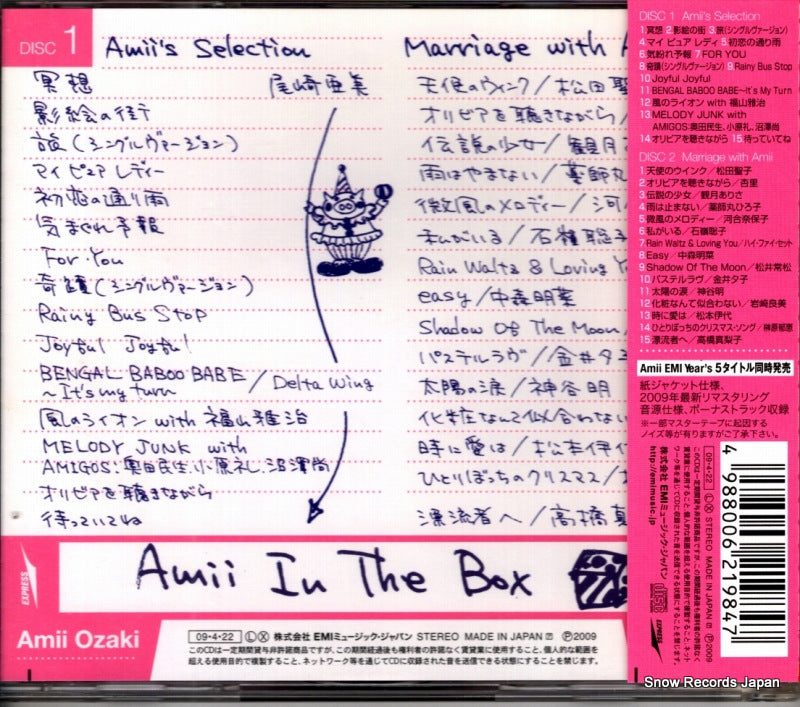 DISC 1 Amii's Selection
冥想 尾崎亜美
影絵の街
旅(シングルヴァージョン)
マイ ピュア レディー
初恋の通り雨
気まぐれ予報
For・You
奇蹟(シングルヴァージョン)
Rainy Bus Stop
Joyful Joyful
BENGAL BABOO BABE / Delta Wing
～It's my turn
風のライオン with 福山雅治
MELODY JUNK with
AMIGOS:奥田民生、小原礼、沼澤尚
オリビアを聴きながら
待っていてね
Marriage with A
天使のウィンク/松田聖
オリビアを聴きながら/
伝説の少女/観月
雨はやまない/薬師丸
微風のメロディー/河
私がいる/石嶺聡子
Rain Waltz & Loving Y
easy/中森明菜
Shadow Of The Moon/
パステルラヴ/金井夕
太陽の涙/神谷明
化粧なんて似合わない
時に愛は/松本伊代
ひとりぼっちのクリスマス/
漂流者へ/高橋真
EXPRESS
Amii In The Box
Amii Ozaki
09・4・22 L X 株式会社EMIミュージック・ジャパン STEREO MADE IN JAPAN ℗2009
このCDは一定期間貸与非許諾商品ですが、この期間経過後も権利者の許諾なく賃貸業に使用すること、個人的な範囲を
超える使用目的で複製すること、ネットワーク等を通じてCDに収録された音を送信できる状態にすることを禁じます。
DISC 1 Amii's Selection
1 冥想 2 影絵の街 3 旅(シングルヴァージョン)
4 マイ ピュア レディ 5 初恋の通り雨
6 気紛れ予報 7 FOR YOU
8 奇蹟(シングルヴァージョン) 9 Rainy Bus Stop
10 Joyful Joyful
11 BENGAL BABOO BABE～It's My Turn
12 風のライオン with 福山雅治
13 MELODY JUNK with
AMIGOS:奥田民生、小原礼、沼澤尚
14 オリビアを聴きながら 15 待っていてね
DISC 2 Marriage with Amii
1 天使のウインク/松田聖子
2 オリビアを聴きながら/杏里
3 伝説の少女/観月ありさ
4 雨は止まない/薬師丸ひろ子
5 微風のメロディー/河合奈保子
6 私がいる/石嶺聡子
7 Rain Waltz & Loving You/ハイ・ファイ・セット
8 Easy/中森明菜
9 Shadow Of The Moon/松井常松
10 パステルラヴ/金井夕子
11 太陽の涙/神谷明
12 化粧なんて似合わない/岩崎良美
13 時に愛は/松本伊代
14 ひとりぼっちのクリスマス・ソング/榊原郁恵
15 漂流者へ/高橋真梨子
Amii EMI Year's 5タイトル同時発売
紙ジャケット仕様、
2009年最新リマスタリング
音源仕様、ボーナストラック収録
※一部マスターテープに起因する
ノイズ等が有りますがご了承下さい。
4 988006 219847
09・4・22 L X STEREO MADE IN JAPAN ℗2009
このCDは一定期間貸与非許諾商品ですが、この期間経過後も権利者の許諾なく
賃貸業に使用すること、個人的な範囲を超える使用目的で複製すること、ネット
ワーク等を通じてCDに収録された音を送信できる状態にすることを禁じます。
株式会社EMIミュージック・ジャパン
http://emimusic.jp
EXPRESS
Snow Records Japan